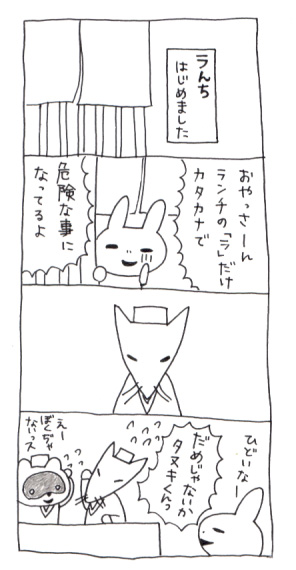 らんち
はじめました
おやっさーん
ランチの「ラ」だけ
カタカナで
危険な事に
なってるよ
ひどいなー
だめじゃないか
タヌキくんっ
えー
ぼくぢゃ
ないっス